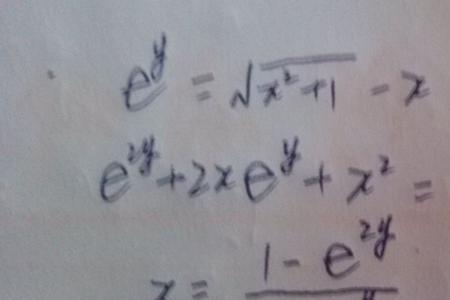 e^y = √(x²+1) - x
e^{2y} + 2xe^y + x² =
x = 1 - e^{2y}